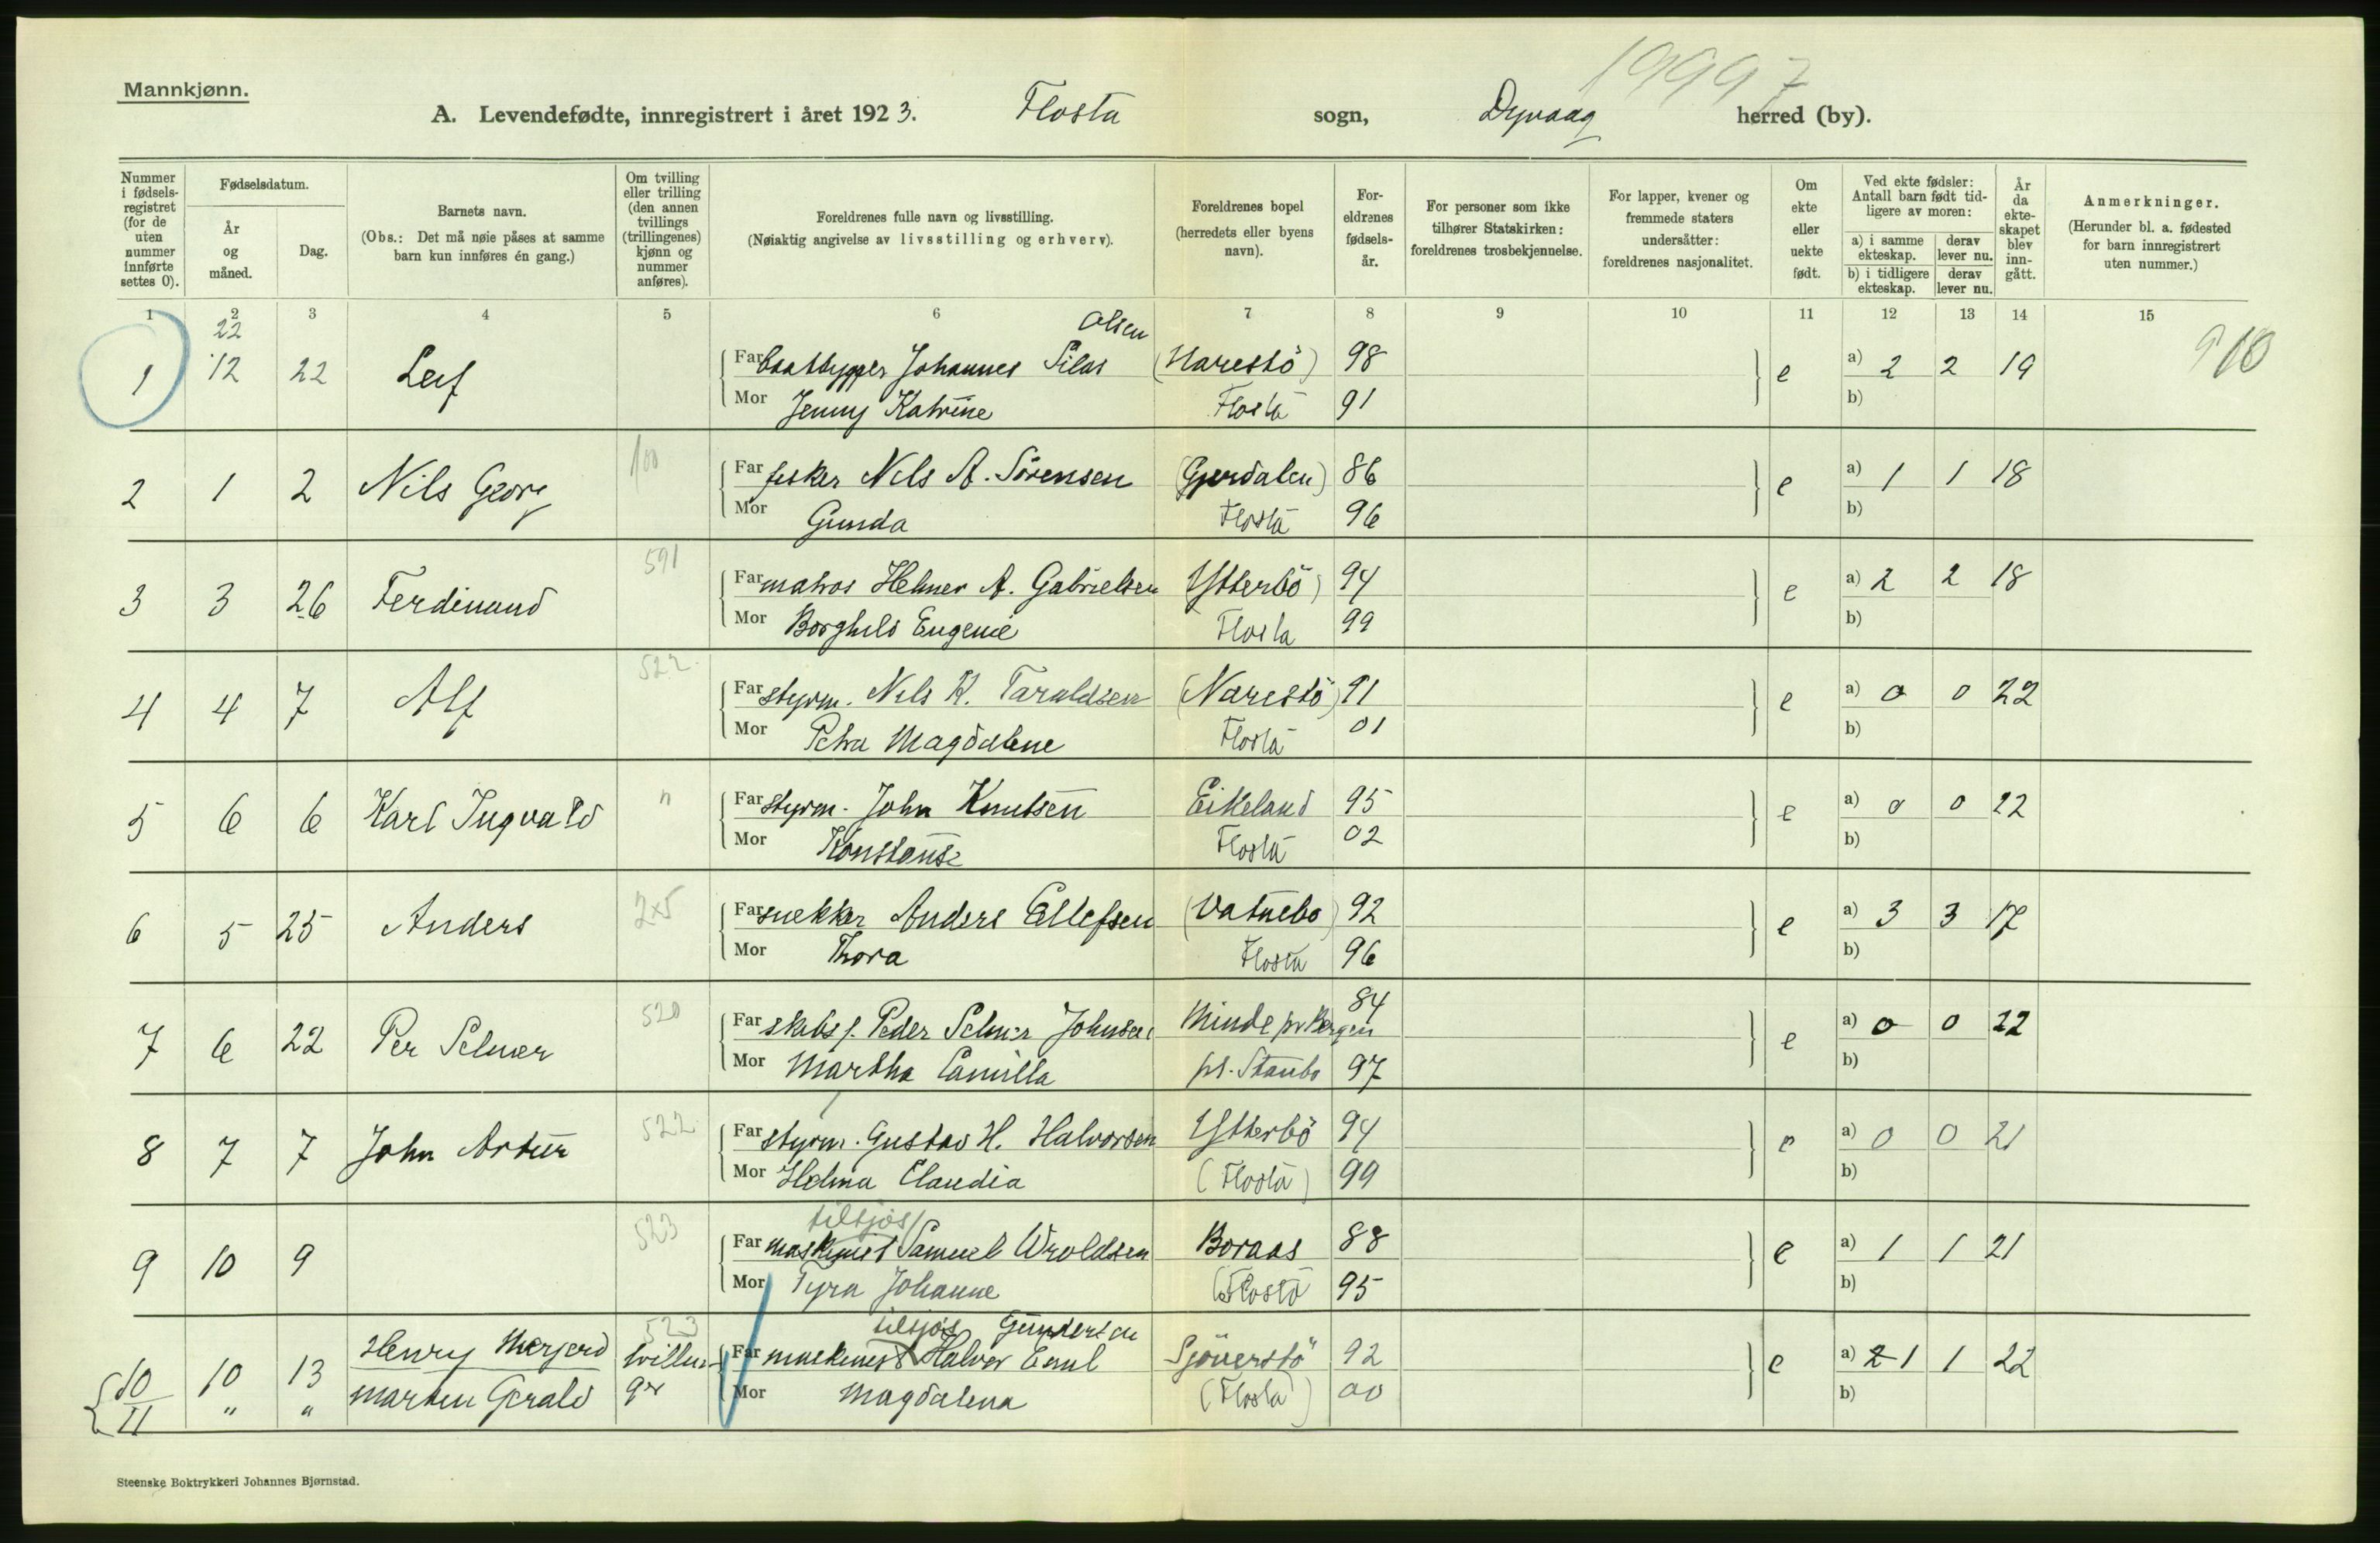 Mannkjønn.
19997
A. Levendefødte, innregistrert i året 1923. Flosta sogn, Dypvaag herred (by).
Nummer i fødsels-registret (for de uten nummer innførte settes 0).
Fødselsdatum.
År og måned.
Dag.
Barnets navn.
(Obs.: Det må nøie påses at samme barn kun innføres én gang.)
Om tvilling eller trilling (den annen tvillings (trillingenes) kjønn og nummer anføres).
Foreldrenes fulle navn og livsstilling.
(Nøiaktig angivelse av livsstilling og erhverv).
Foreldrenes bopel (herredets eller byens navn).
For-eldrenes fødsels-år.
For personer som ikke tilhører Statskirken: foreldrenes trosbekjennelse.
For lapper, kvener og fremmede staters undersåtter: foreldrenes nasjonalitet.
Om ekte eller uekte født.
Ved ekte fødsler: Antall barn født tid-ligere av moren:
a) i samme ekteskap.
derav lever nu.
b) i tidligere ekteskap.
derav lever nu.
År da ekte-skapet blev inn-gått.
Anmerkninger.
(Herunder bl. a. fødested for barn innregistrert uten nummer.)
1 2 3 4 5 6 7 8 9 10 11 12 13 14 15
22 Olsen
1 12 22 Leif Far baatbygger Johannes Silas (Narestö) 98 e a) 2 2 19
Mor Jenny Katrine Flosta 91 b)
100
2 1 2 Nils Georg Far fisker Nils A. Sörensen (Gjerdalen) 86 e a) 1 1 18
Mor Gunda Flosta 96 b)
591
3 3 26 Ferdinand Far matros Helmer A. Gabrielsen Ytterbö) 94 e a) 2 2 18
Mor Borghild Eugenie Flosta 99 b)
522
4 4 7 Alf Far styrm. Nils K. Taraldsen (Narestö) 91 e a) 0 0 22
Mor Petra Magdalene Flosta 01 b)
"
5 6 6 Karl Ingvald Far styrm. John Knutsen Eikeland 95 e a) 0 0 22
Mor Konstanse Flosta 02 b)
6 5 25 Anders Far snekker Anders Ellefsen (Vatnebo) 92 e a) 3 3 17
Mor Thora Flosta 96 b)
520 84
7 6 22 Per Selmer Far skibsf. Peder Selmer Johnsen Minde pr Bergen e a) 0 0 22
Mor Martha Camilla pt. Staubo 97 b)
522
8 7 7 John Artur Far styrm. Gustav H. Halvorsen Ytterbö 94 e a) 0 0 21
Mor Helma Claudia (Flosta) 99 b)
523 tilsjøs
9 10 9 Far maskinist Samuel Wroldsen Boraas 88 e a) 1 1 21
Mor Tyra Johanne (Flosta 95 b)
523 tilsjøs Gundersen
10 10 13 Henry Far maskinist Halvor Emil Sjöverstö 92 e a) 2 1 1 22
11 " " Marten Gerald Mor Magdalena (Flosta) 00 b)
Steenske Boktrykkeri Johannes Bjørnstad.